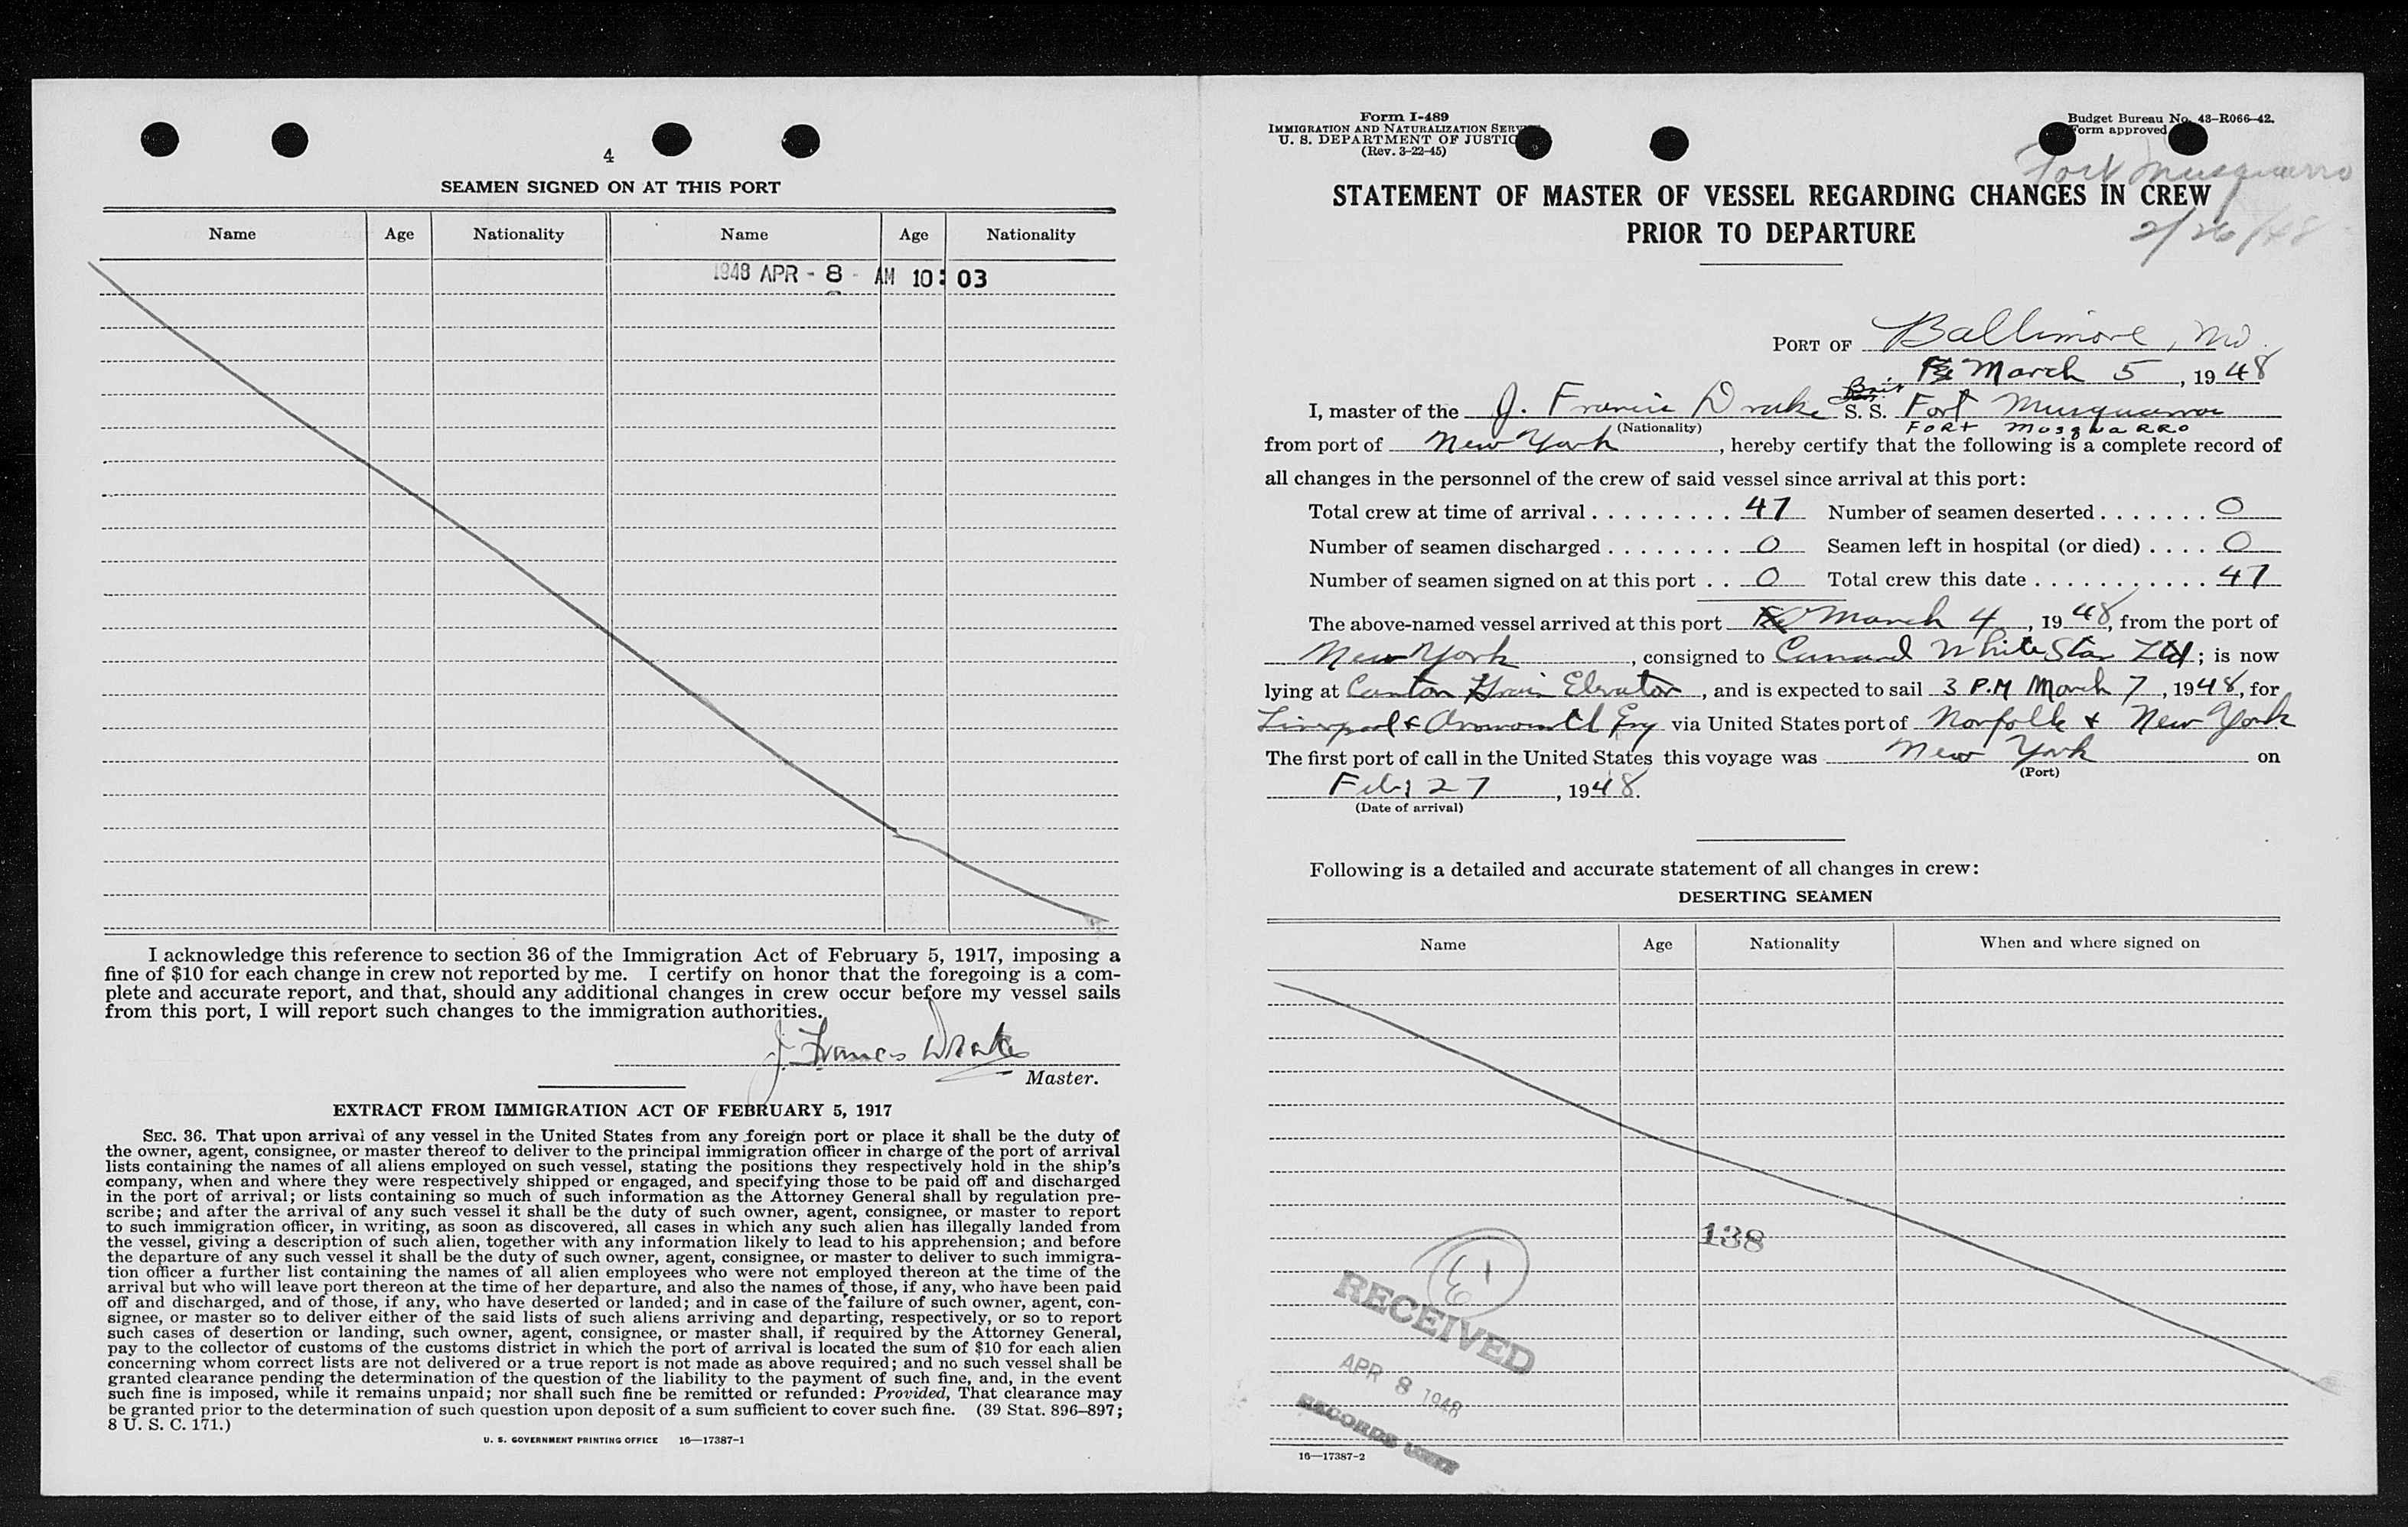 4
SEAMEN SIGNED ON AT THIS PORT
Name Age Nationality Name Age Nationality
1948 APR - 8 - AM 10: 03
I acknowledge this reference to section 36 of the Immigration Act of February 5, 1917, imposing a
fine of $10 for each change in crew not reported by me. I certify on honor that the foregoing is a com-
plete and accurate report, and that, should any additional changes in crew occur before my vessel sails
from this port, I will report such changes to the immigration authorities.
J. Francis Drake
Master.
EXTRACT FROM IMMIGRATION ACT OF FEBRUARY 5, 1917
SEC. 36. That upon arrival of any vessel in the United States from any foreign port or place it shall be the duty of
the owner, agent, consignee, or master thereof to deliver to the principal immigration officer in charge of the port of arrival
lists containing the names of all aliens employed on such vessel, stating the positions they respectively hold in the ship's
company, when and where they were respectively shipped or engaged, and specifying those to be paid off and discharged
in the port of arrival; or lists containing so much of such information as the Attorney General shall by regulation pre-
scribe; and after the arrival of any such vessel it shall be the duty of such owner, agent, consignee, or master to report
to such immigration officer, in writing, as soon as discovered, all cases in which any such alien has illegally landed from
the vessel, giving a description of such alien, together with any information likely to lead to his apprehension; and before
the departure of any such vessel it shall be the duty of such owner, agent, consignee, or master to deliver to such immigra-
tion officer a further list containing the names of all alien employees who were not employed thereon at the time of the
arrival but who will leave port thereon at the time of her departure, and also the names of those, if any, who have been paid
off and discharged, and of those, if any, who have deserted or landed; and in case of the failure of such owner, agent, con-
signee, or master so to deliver either of the said lists of such aliens arriving and departing, respectively, or so to report
such cases of desertion or landing, such owner, agent, consignee, or master shall, if required by the Attorney General,
pay to the collector of customs of the customs district in which the port of arrival is located the sum of $10 for each alien
concerning whom correct lists are not delivered or a true report is not made as above required; and no such vessel shall be
granted clearance pending the determination of the question of the liability to the payment of such fine, and, in the event
such fine is imposed, while it remains unpaid; nor shall such fine be remitted or refunded: Provided, That clearance may
be granted prior to the determination of such question upon deposit of a sum sufficient to cover such fine. (39 Stat. 896–897;
8 U. S. C. 171.)
U. S. GOVERNMENT PRINTING OFFICE 16—17387-1
Form I-489
IMMIGRATION AND NATURALIZATION SERV
U. S. DEPARTMENT OF JUSTIC
(Rev. 3-22-45)
Budget Bureau No. 43-R066-42.
Form approved
Fort Musquarro
2/26/48
STATEMENT OF MASTER OF VESSEL REGARDING CHANGES IN CREW
PRIOR TO DEPARTURE
PORT OF Baltimore, Md.
March 5, 1948
Brit
I, master of the J. Francis Drake S. S. Fort Musquarro
(Nationality) FORT MUSQUARRO
from port of New York, hereby certify that the following is a complete record of
all changes in the personnel of the crew of said vessel since arrival at this port:
Total crew at time of arrival . . . . . . . . . 47 Number of seamen deserted . . . . . . . 0
Number of seamen discharged . . . . . . . . 0 Seamen left in hospital (or died) . . . . 0
Number of seamen signed on at this port . . 0 Total crew this date . . . . . . . . . . . 47
The above-named vessel arrived at this port March 4, 1948, from the port of
New York, consigned to Cunard White Star Ltd; is now
lying at Canton Grain Elevator, and is expected to sail 3 P.M March 7, 1948, for
Liverpool & Avonmouth Eng via United States port of Norfolk & New York
The first port of call in the United States this voyage was New York on
(Port)
Feb. 27, 1948.
(Date of arrival)
Following is a detailed and accurate statement of all changes in crew:
DESERTING SEAMEN
Name Age Nationality When and where signed on
138
RECEIVED
APR 8 1948
RECORDS
16—17387-2